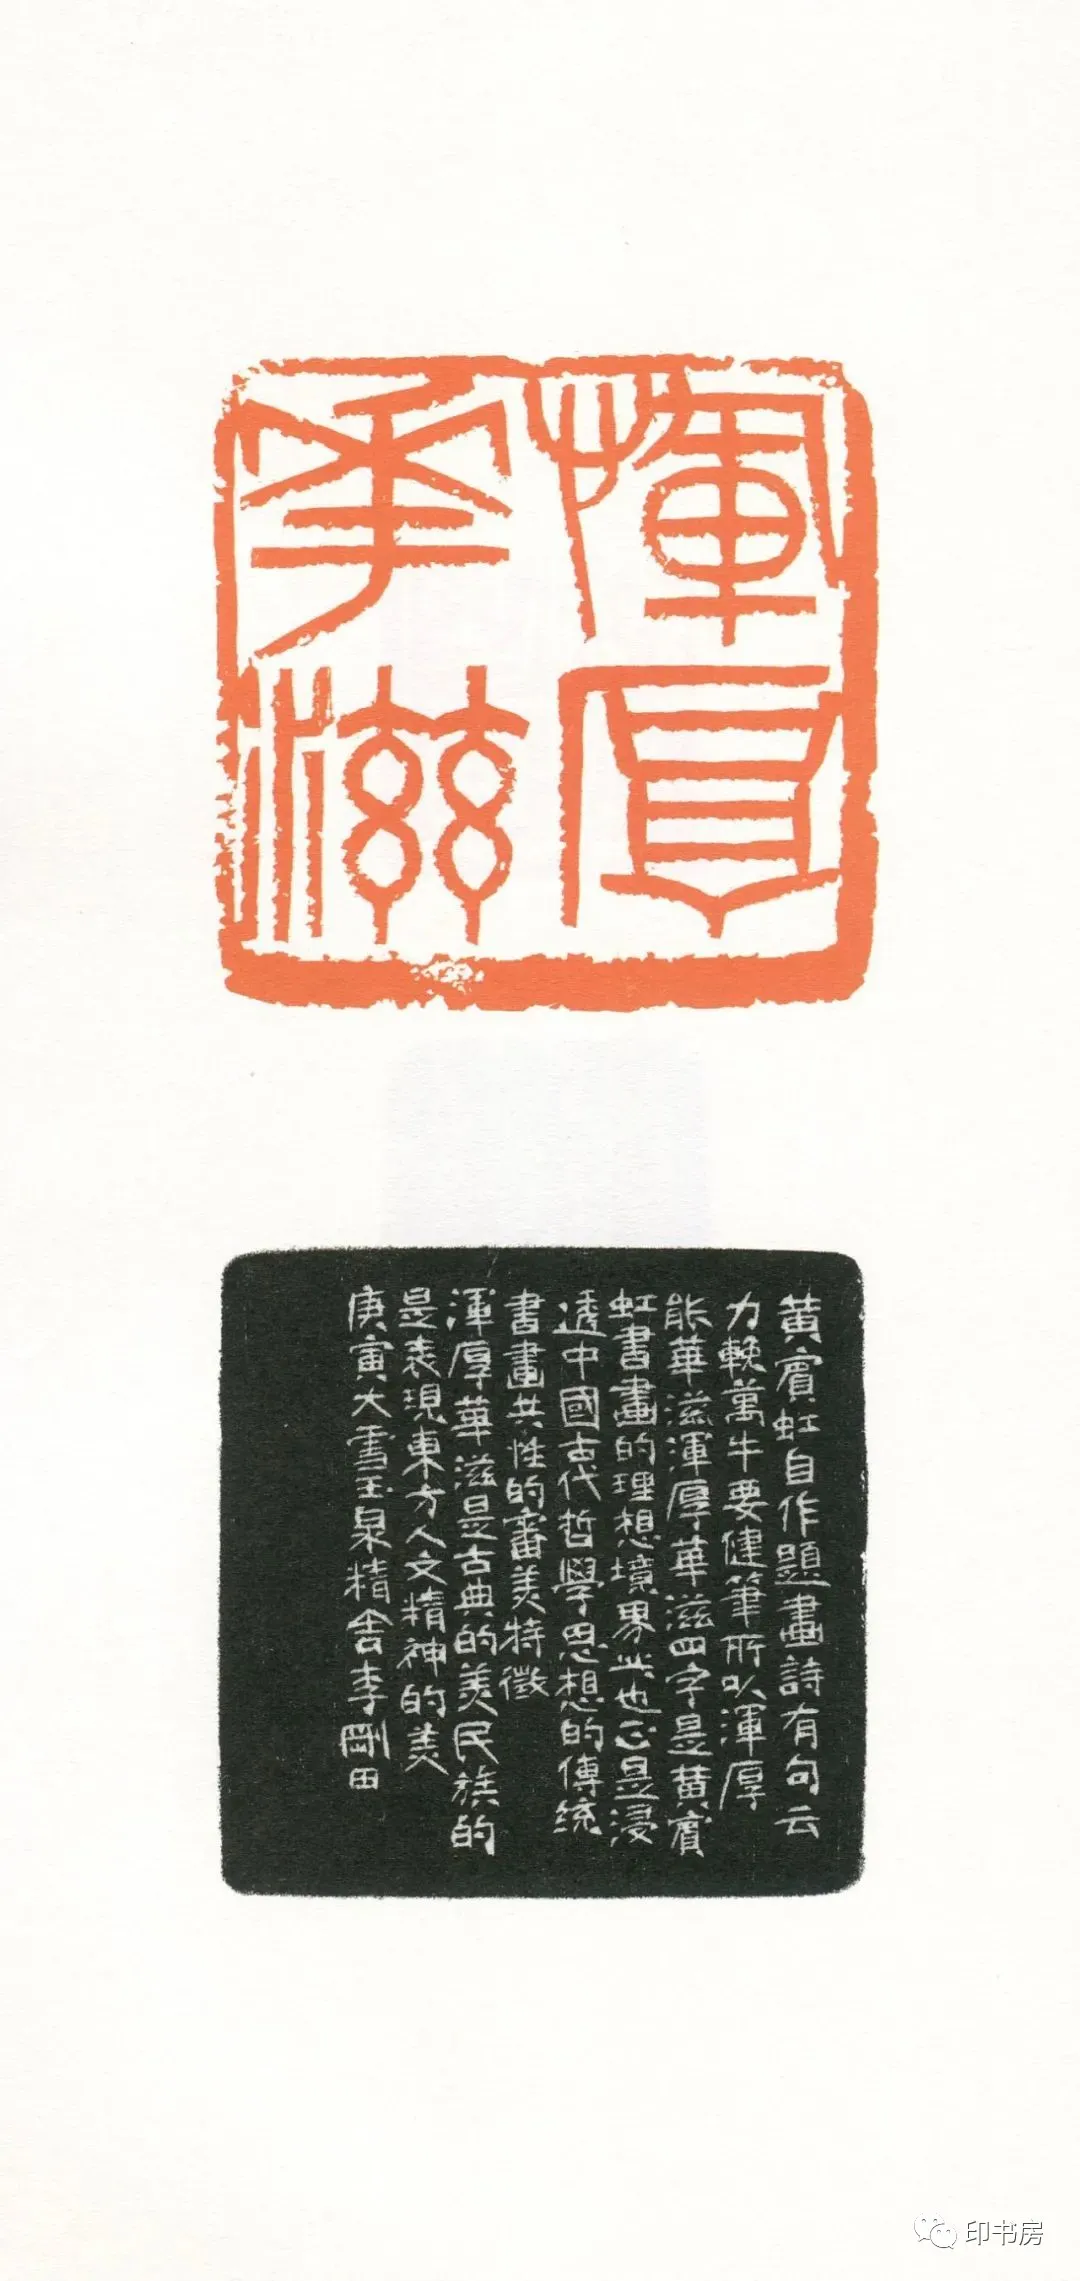 渾厚
華滋
黃賓虹自作題畫詩有句云
力輓萬牛要健筆所以渾厚
能華滋渾厚華滋四字是黃賓
虹書畫的理想境界此也正是浸
透中國古代哲學思想的傳統
書畫共性的審美特徵
渾厚華滋是古典的美民族的
是表現東方人文精神的美
庚寅大雪玉泉精舍李剛田
印书房